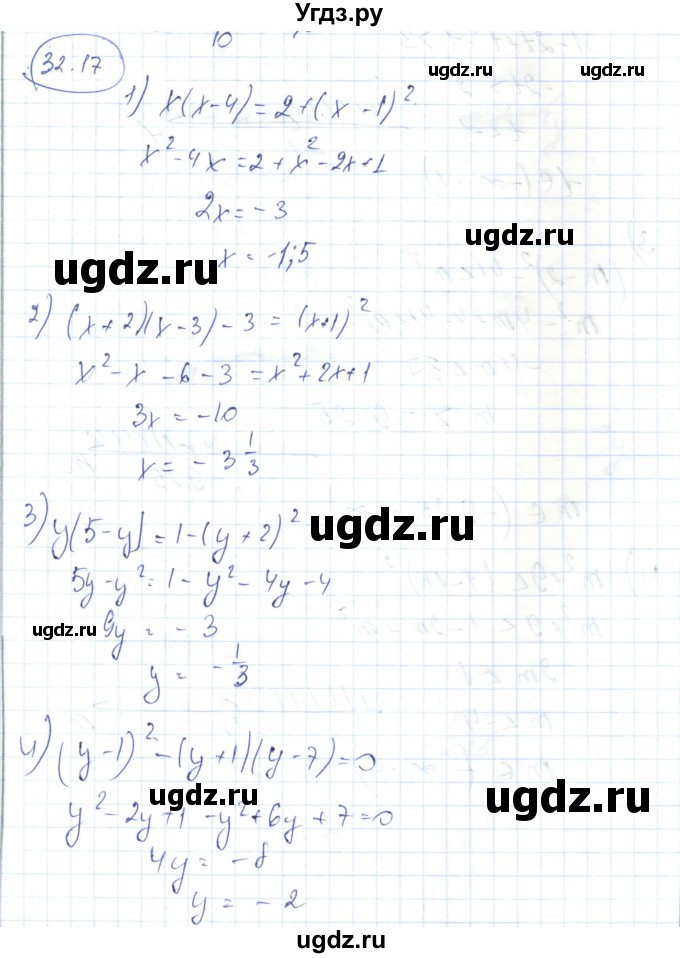 Угдз.ру
10
32.17
1) x(x-4)=2+(x-1)²
x²-4x=2+x²-2x+1
2x=-3
ugdz.ru
ugdz.ru
x=-1;5
2) (x+2)(x-3)-3=(x+1)²
x²-x-6-3=x²+2x+1
3x=-10
ugdz.ru
x=-3 1/3
3) y(5-y)=1-(y+2)²
ugdz.ru
5y-y²=1-y²-4y-4
ugdz.ru
9y=-3
ugdz.ru
y=-1/3
4) (y-1)²-(y+1)(y-7)=0
ugdz.ru
ugdz.ru
y²-2y+1-y²+6y+7=0
4y=-8
y=-2
ugdz.ru